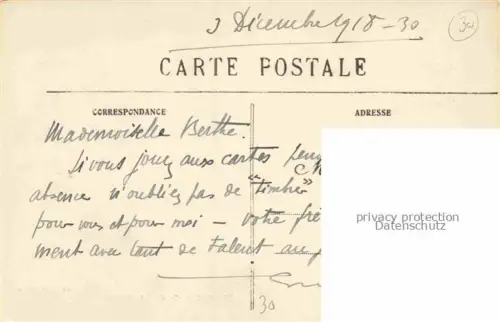 3 Décembre 1918 - 30
30
CARTE POSTALE
CORRESPONDANCE
ADRESSE
Mademoiselle Berthe.
Si vous jouez aux cartes
absence n'oubliez pas de "timbre"
pour vous et pour moi - votre
ment avec tant de talent au
privacy protection
Datenschutz
30